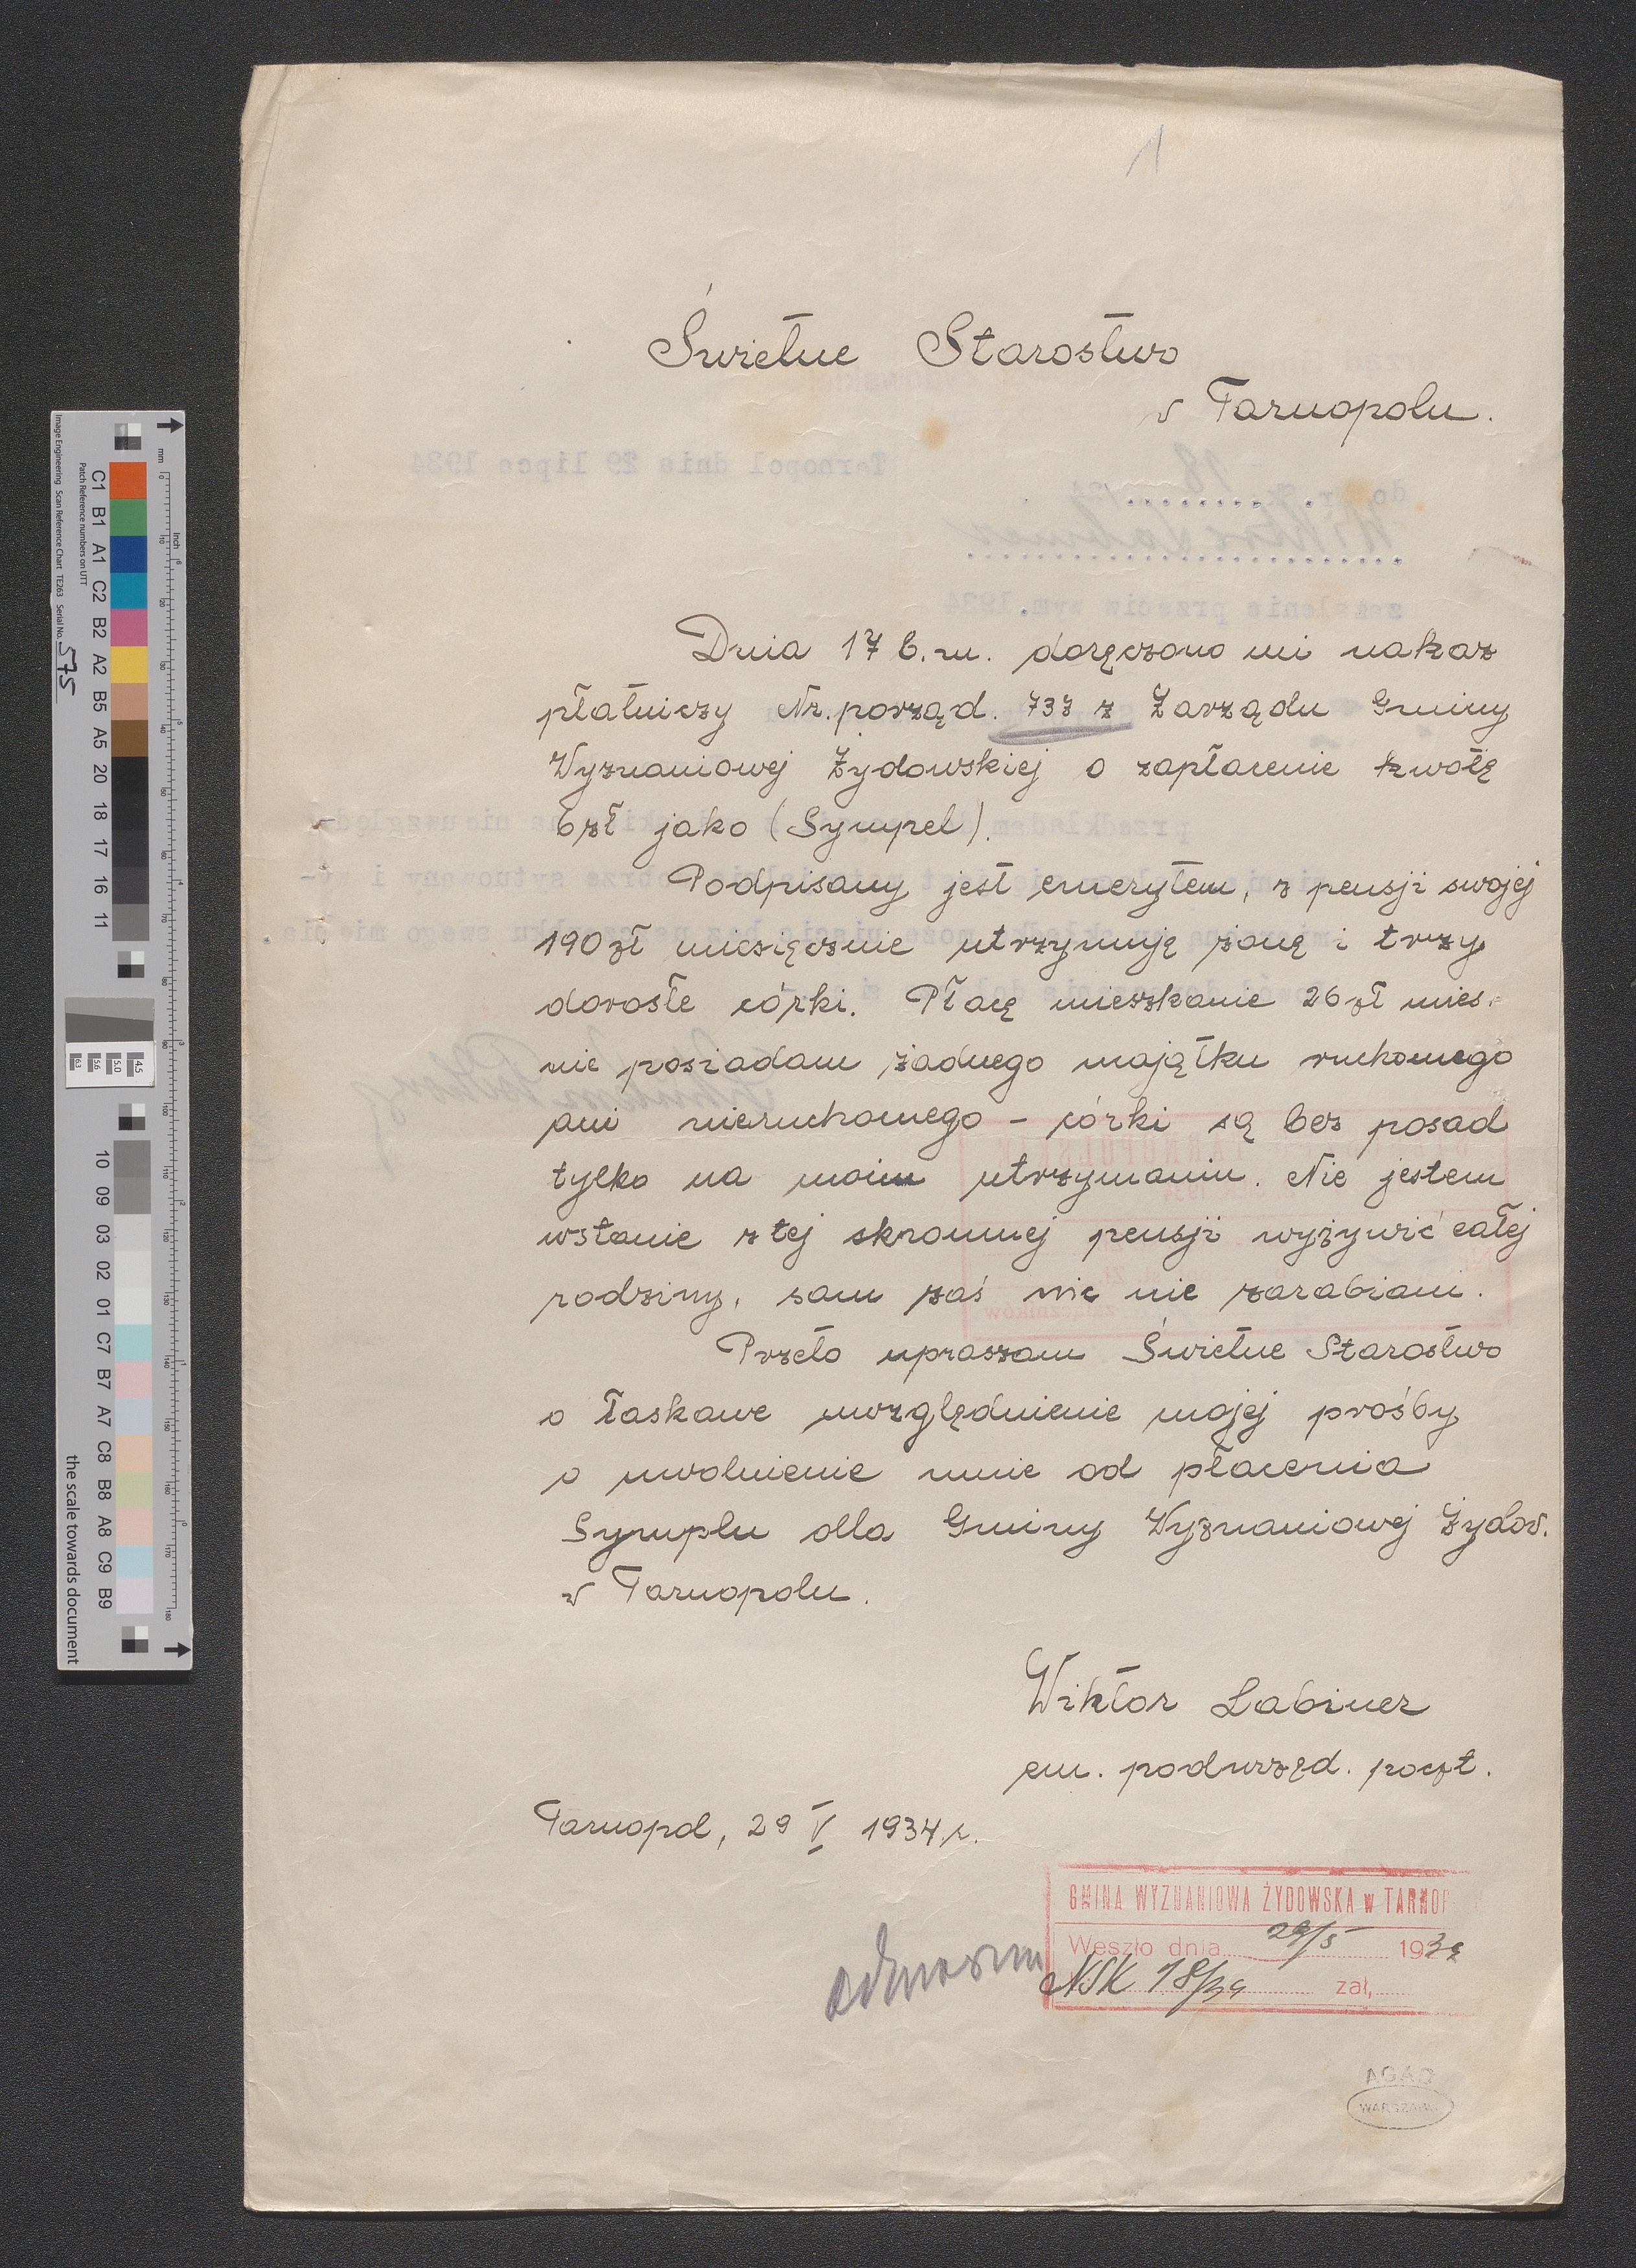 1
Świetne Starostwo
w Tarnopolu.
Dnia 17 b.m. doręczono mi nakaz
płatniczy Nr. porząd. 737 z Zarządu Gminy
Wyznaniowej Żydowskiej o zapłacenie kwotę
6 zł jako (Sympel).
Podpisany jest emerytem, z pensji swojej
190 zł miesięcznie utrzymuję żonę i trzy
dorosłe córki. Płacę mieszkanie 26 zł mies.
nie posiadam żadnego majątku ruchomego
ani nieruchomego – córki są bez posad
tylko na moim utrzymaniu. Nie jestem
wstanie z tej skromnej pensji wyżywić całej
rodziny, sam zaś nic nie zarabiam.
Przeto upraszam Świetne Starostwo
o łaskawe uwzględnienie mojej prośby
o uwolnienie mnie od płacenia
Symplu dla Gminy Wyznaniowej Żydow.
w Tarnopolu.
Wiktor Labiner
em. podurzęd. poczt.
Tarnopol, 29 V 1934 r.
GMINA WYZNANIOWA ŻYDOWSKA w TARNOP
Weszło dnia 29/5 1934
NSK 18/34 zał,
AGAD
WARSZAWA
Image Engineering Scan Reference Chart TE263 Serial No. 575
Patch Reference numbers on UTT
C1 B1 A1 C2 B2 A2 B5 A5 20 18 17 16 11
10 09 03 02 01 C7 B7 A7 C8 B8 A8 C9 B9
the scale towards document